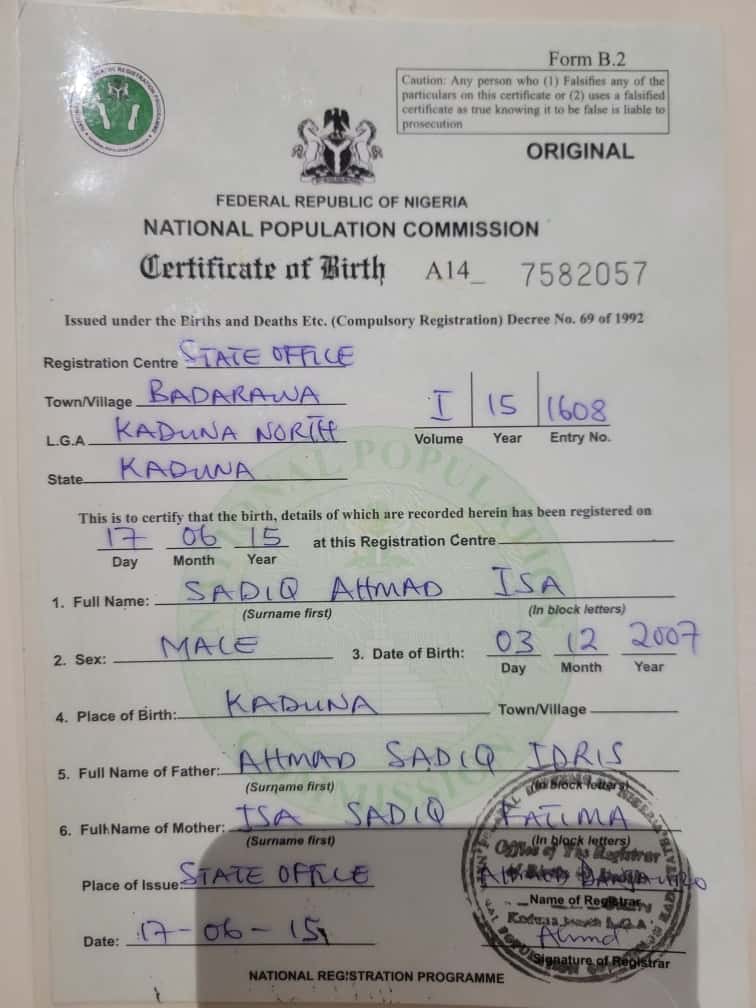 Form B.2
Caution: Any person who (1) Falsifies any of the
particulars on this certificate or (2) uses a falsified
certificate as true knowing it to be false is liable to
prosecution
ORIGINAL
FEDERAL REPUBLIC OF NIGERIA
NATIONAL POPULATION COMMISSION
Certificate of Birth A14_ 7582057
Issued under the Births and Deaths Etc. (Compulsory Registration) Decree No. 69 of 1992
Registration Centre STATE OFFICE
Town/Village BADARAWA
I 15 1608
L.G.A KADUNA NORTH
Volume Year Entry No.
State KADUNA
NATIONAL POPULATION COMMISSION
This is to certify that the birth, details of which are recorded herein has been registered on
17 06 15 at this Registration Centre
Day Month Year
1. Full Name: SADIQ AHMAD ISA
(Surname first) (In block letters)
2. Sex: MALE 3. Date of Birth: 03 12 2007
Day Month Year
4. Place of Birth: KADUNA Town/Village
5. Full Name of Father: AHMAD SADIQ IDRIS
(Surname first) (In block letters)
6. Full Name of Mother: ISA SADIQ FATIMA
(Surname first) (In block letters)
Office of The Registrar
Place of Issue: STATE OFFICE
Name of Registrar
Date: 17-06-15 Ahmd
Signature of Registrar
NATIONAL REGISTRATION PROGRAMME